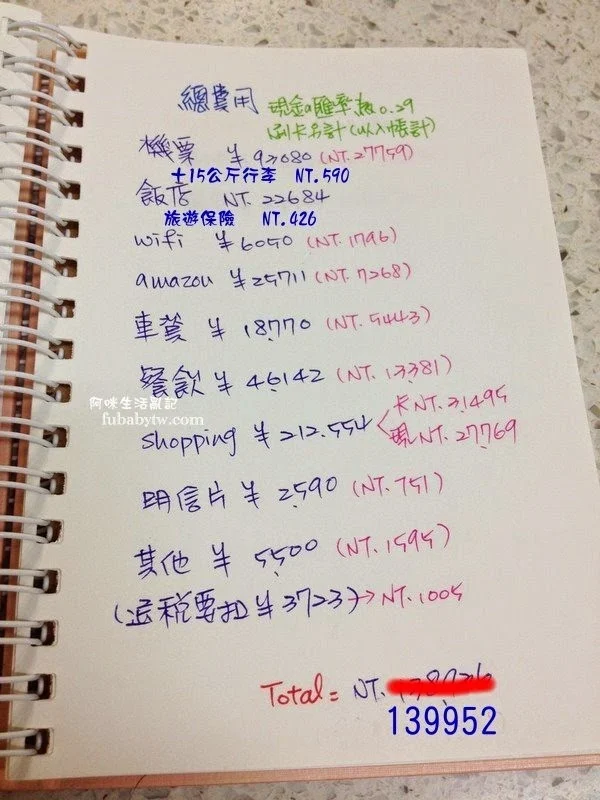 總費用 現金の匯率抓0.29
刷卡另計(以入帳計)
機票 ¥92080(NT.27759)
+15公斤行李 NT.590
飯店 NT.22684
旅遊保險 NT.426
wifi ¥6050(NT.1796)
amazon ¥25711(NT.7268)
車資 ¥18,770(NT.5443)
餐飲 ¥46,142(NT.13,381)
阿咪生活亂記
fubabytw.com
shopping ¥212,554 卡NT.31,495
現NT.27,769
明信片 ¥2,590(NT.751)
其他 ¥5,500(NT.1,595)
(退稅要扣 ¥3723)→NT.1005
Total = NT.
139952